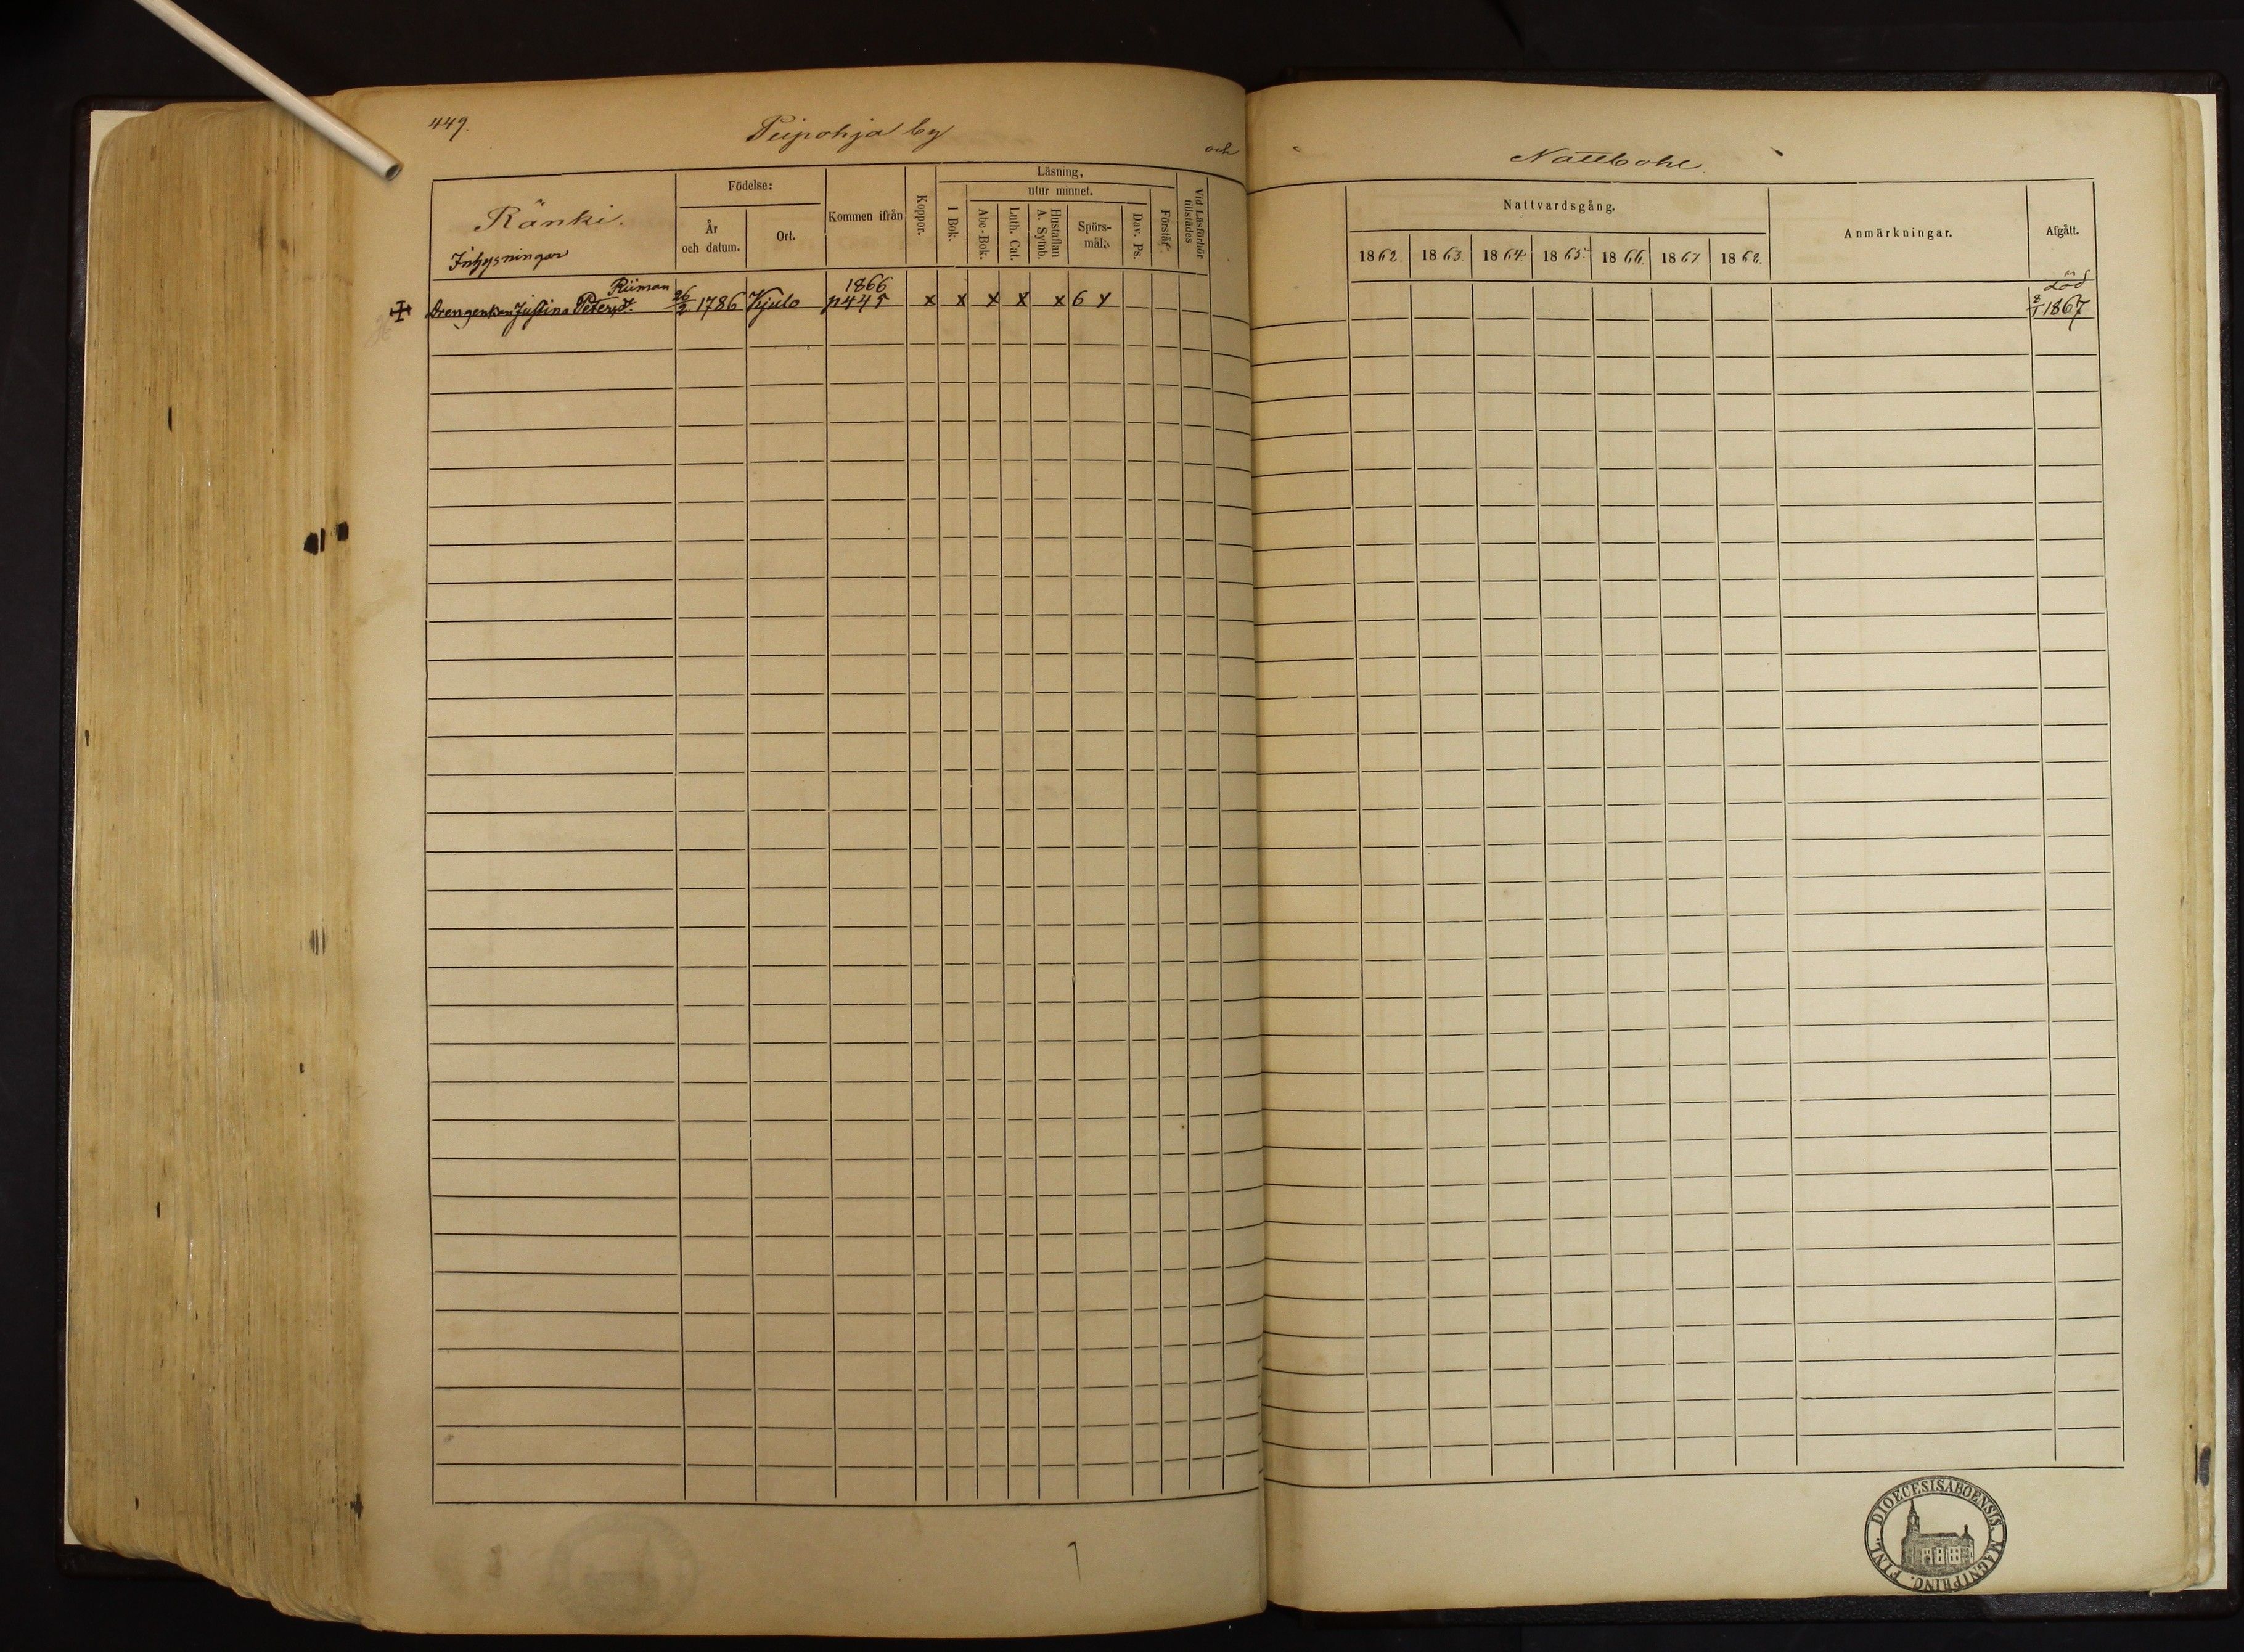 449.
Peipohja by
och
Nattbohl
Ränki.
Inhysningar
Födelse:
År och datum.
Ort.
Kommen ifrån
Koppor.
Läsning,
utur minnet.
I Bok.
Abc-Bok.
Luth. Cat.
Hustaflan A. Symb.
Spörs-mål.
Dav. Ps.
Förstår
Vid Läsförhör tillstädes
Nattvardsgång.
1862. 1863. 1864. 1865. 1866. 1867. 1868.
Anmärkningar.
Afgått.
Riiman 1866 död
Drengenkan Justina Petersdr. 26/2 1786 Kjulo p 445 x x x x x 6 x 2/1 1867
DIOECESIS ABOENSIS MAGNI PRINC. FINL.